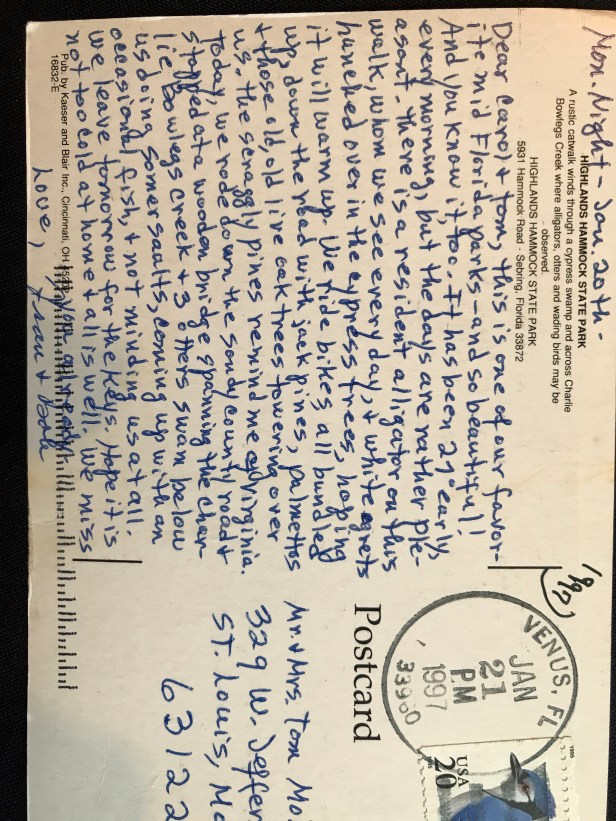 Mon. Night - Jan. 20th -
HIGHLANDS HAMMOCK STATE PARK
A rustic catwalk winds through a cypress swamp and across Charlie
Bowlegs Creek where alligators, otters and wading birds may be
observed.
HIGHLANDS HAMMOCK STATE PARK
5931 Hammock Road - Sebring, Florida 33872
Dear Caro + Tom, this is one of our favor-
ite mid Florida parks - and so beautiful!
And you know it, too. It has been 27° early
every morning, but the days are rather ple-
asant. There is a resident alligator on this
walk, whom we see every day, + white egrets
hunched over in the cypress trees, hoping
it will warm up. We ride bikes all bundled
up, down the road with jack pines, palmettos
+ those old, old live oak trees towering over
us, the scraggly pines remind me of Virginia.
Today, we rode down the sandy county road +
stopped at a wooden bridge spanning the Char-
lie Bowlegs Creek + 3 otters swam below
us doing somersaults, coming up with an
occasional fish, + not minding us at all.
We leave tomorrow for the Keys. Hope it is
not too cold at home + all is well. We miss
Love,
Pub. by Kaeser and Blair Inc., Cincinnati, OH
16832-E
1997
VENUS, FL
JAN
21
PM
1997
33960
USA
20
1995
Postcard
Mr. + Mrs. Tom Mo
329 W. Jeffer
St. Louis, Mo
63122